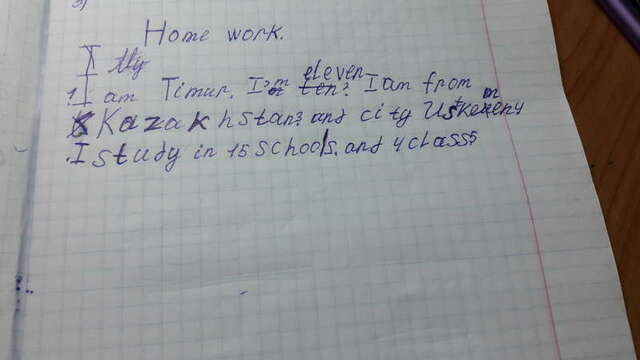 3)
Home work.
I am Timur. I'm eleven. I am from
Kazakhstan? and city
I study in 15 schools. and 4 class5